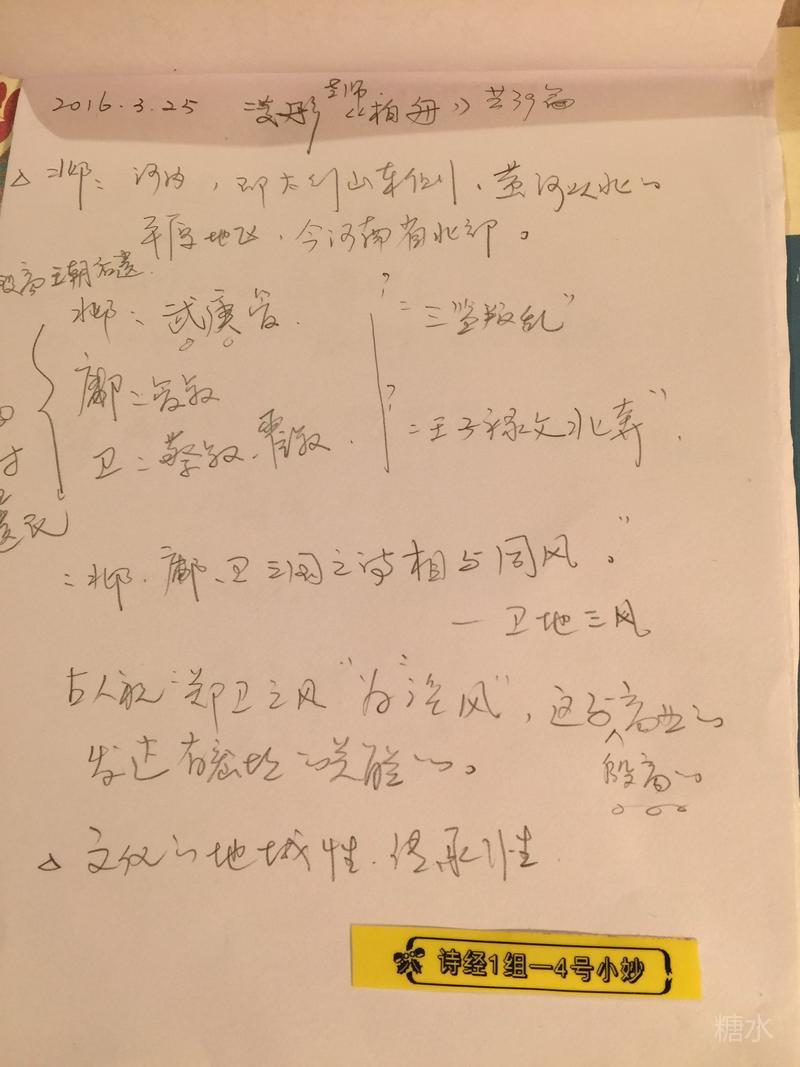 2016.3.25 凌彤老师《柏舟》共39篇
△ 邶：河内，即太行山东侧、黄河以北的
平原地区，今河南省北部。
殷商王朝后裔
邶：武庚管.
鄘：管叔
卫：蔡叔、霍叔.
? "三监叛乱"
? "王子禄父北奔".
遗民
"邶、鄘、卫三国之诗相与同风。"
— 卫地三风
古人视"郑卫之风"为"淫风"，这与商业的
殷商的
发达有密切的关联的。
△ 文化的地域性、传承性
诗经1组一4号小妙
糖水